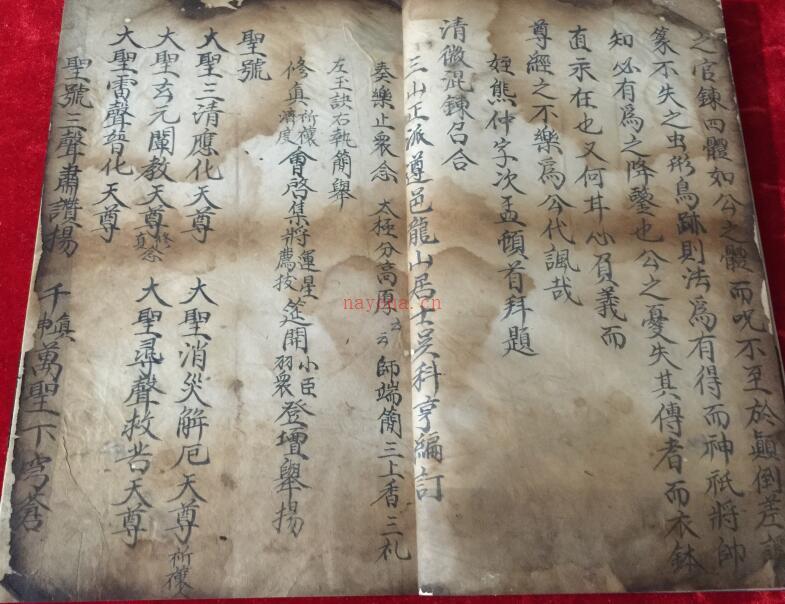 之官鍊四體如公之體而呪不至於顛倒差誤
篆不失之虫形鳥跡則法為有得而神祇將帥
知必有為之降鑒也公之憂失其傳者而衣鉢
直示在也又何其心負義而
尊經之不樂為公代諷哉
姪熊仲字次孟頓首拜題
清微混鍊召合
三山正派遵邑龍山居士吳科亨編訂
奏樂止衆念 太極分高厚云云 師端簡三上香三礼
左王訣右執簡舉
修真祈禳濟度會啓集將運星薦拔筵開小臣羽衆登壇舉揚
聖號
大聖三清應化天尊 大聖消災解厄天尊祈禳
大聖玄元闡教天尊修真念 大聖尋聲救苦天尊
大聖雷聲普化天尊
聖號三聲肅讚揚 千真萬聖下穹蒼
nayona.cn